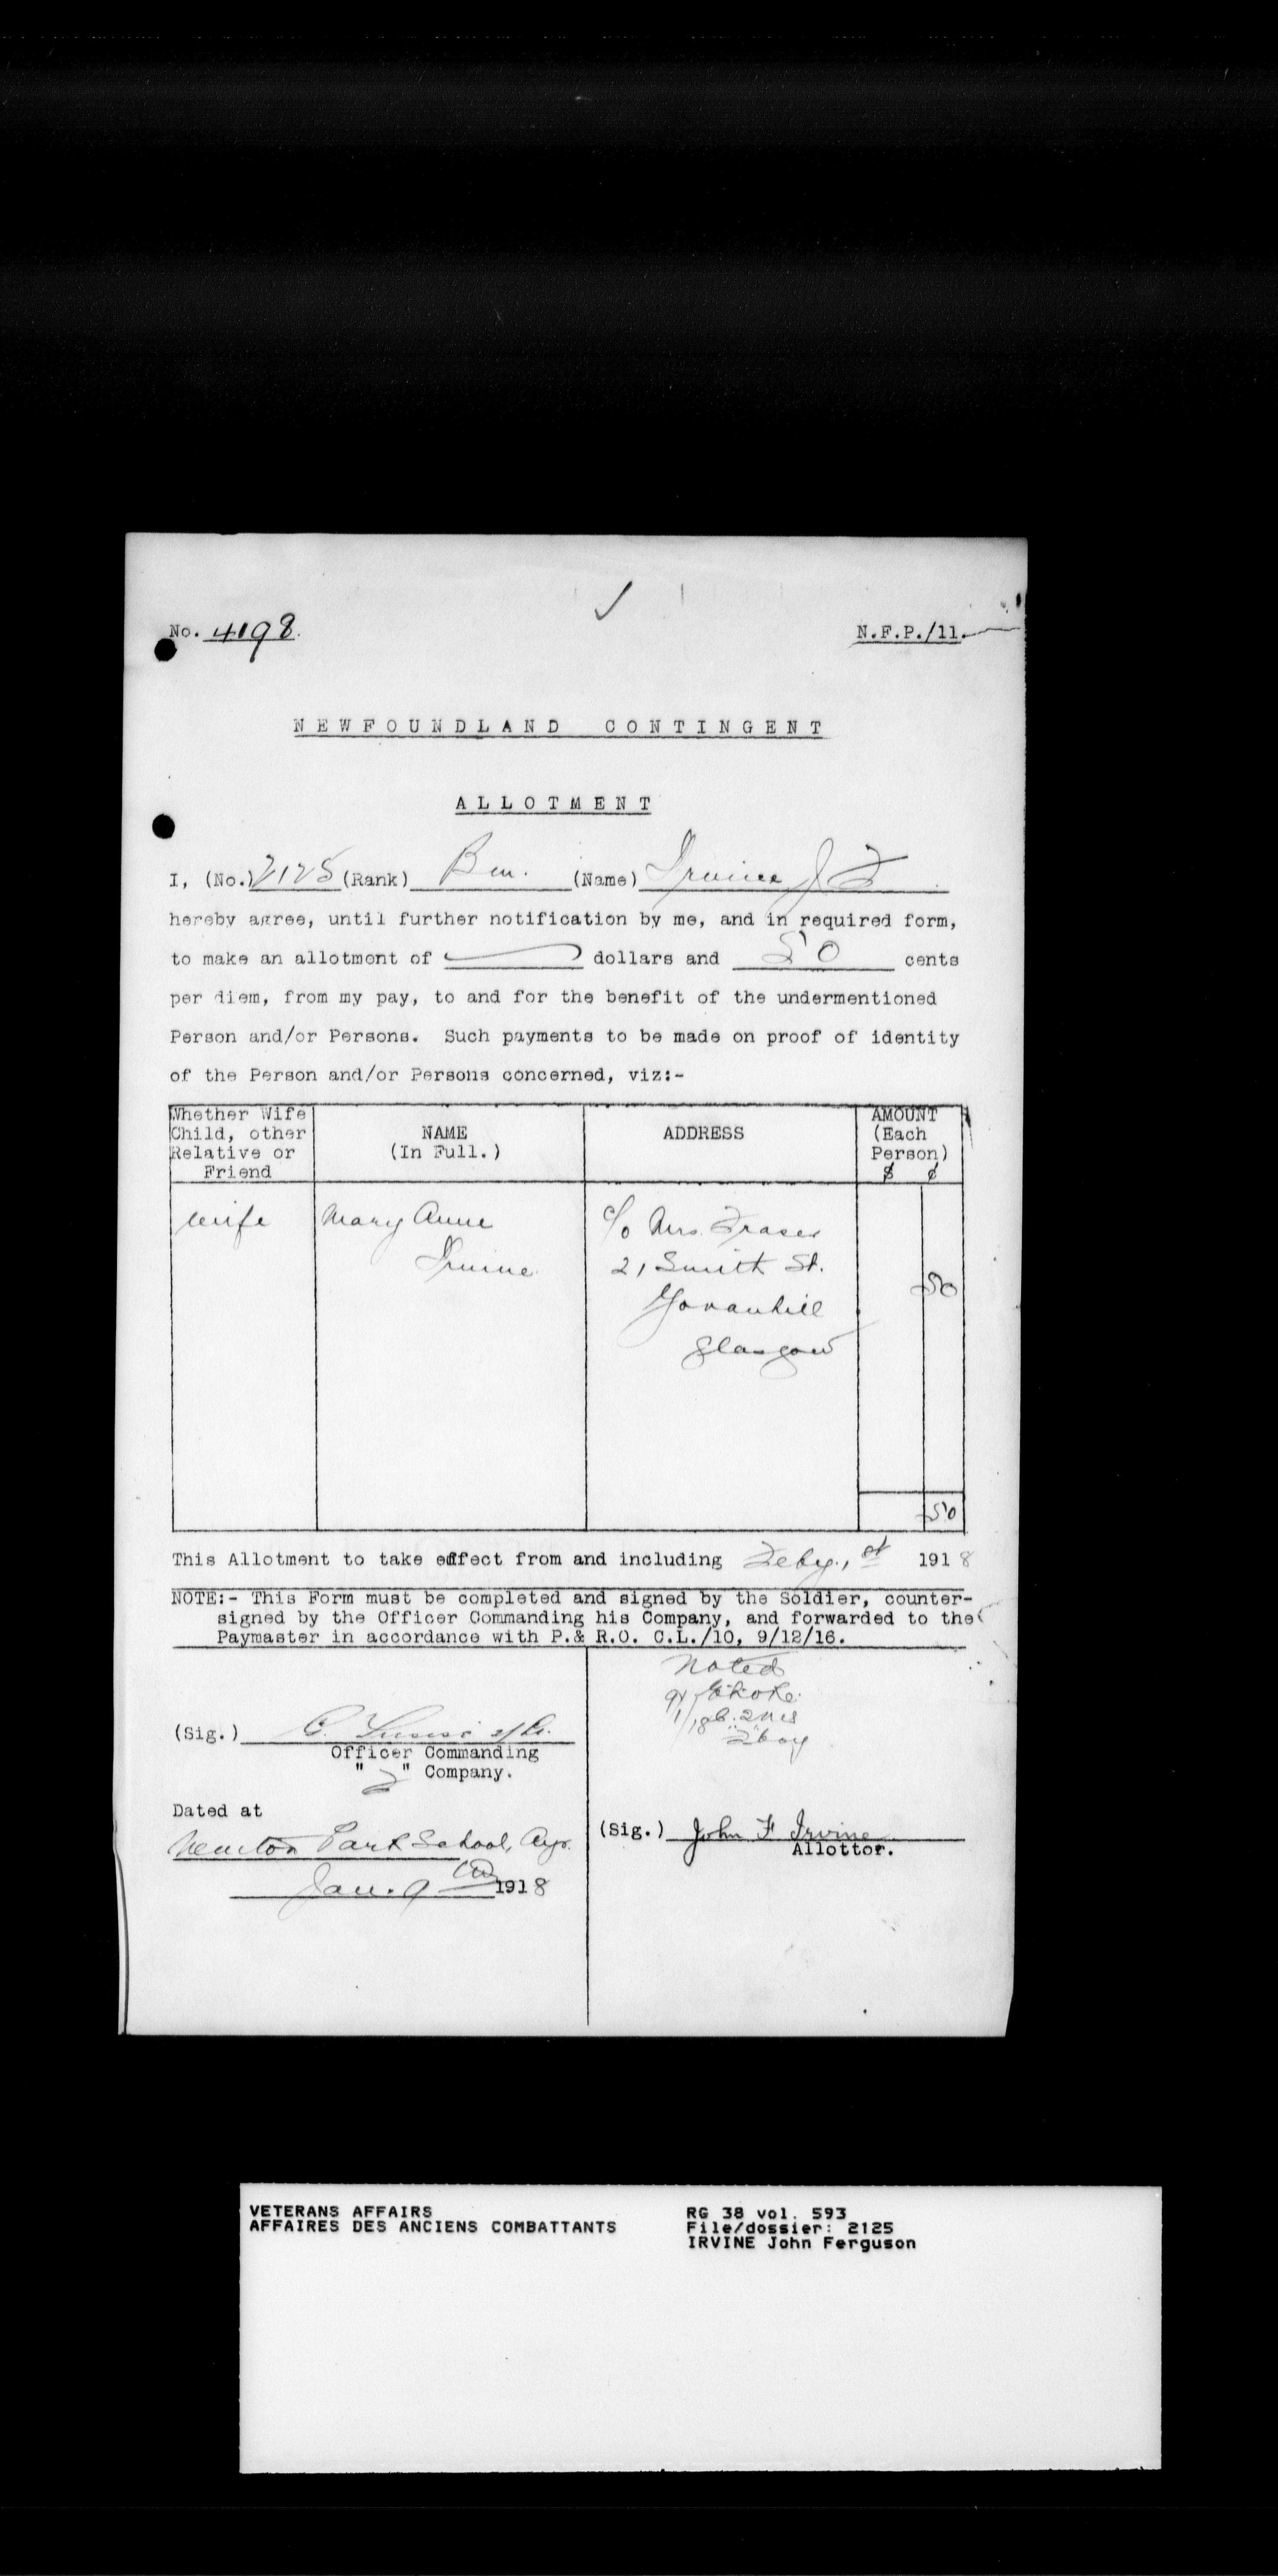 No. 4198.
N.F.P./11.
NEWFOUNDLAND CONTINGENT
ALLOTMENT
I, (No.) 2125 (Rank) Bm. (Name) Irvine J F
hereby agree, until further notification by me, and in required form,
to make an allotment of dollars and 50 cents
per diem, from my pay, to and for the benefit of the undermentioned
Person and/or Persons. Such payments to be made on proof of identity
of the Person and/or Persons concerned, viz:-
Whether Wife
Child, other
Relative or
Friend
NAME
(In Full.)
ADDRESS
AMOUNT
(Each
Person)
$ ¢
wife
Mary Anne
Irvine
c/o Mrs. Fraser
21 Smith St.
Govanhill
Glasgow
50
50
This Allotment to take effect from and including Feby. 1st 1918
NOTE:- This Form must be completed and signed by the Soldier, counter-
signed by the Officer Commanding his Company, and forwarded to the
Paymaster in accordance with P.& R.O. C.L./10, 9/12/16.
Noted
(Sig.)
Officer Commanding
"F" Company.
Dated at
Newton Park School, Ayr.
Jan. 9th 1918
(Sig.) John F Irvine
Allottor.
VETERANS AFFAIRS
AFFAIRES DES ANCIENS COMBATTANTS
RG 38 vol. 593
File/dossier: 2125
IRVINE John Ferguson